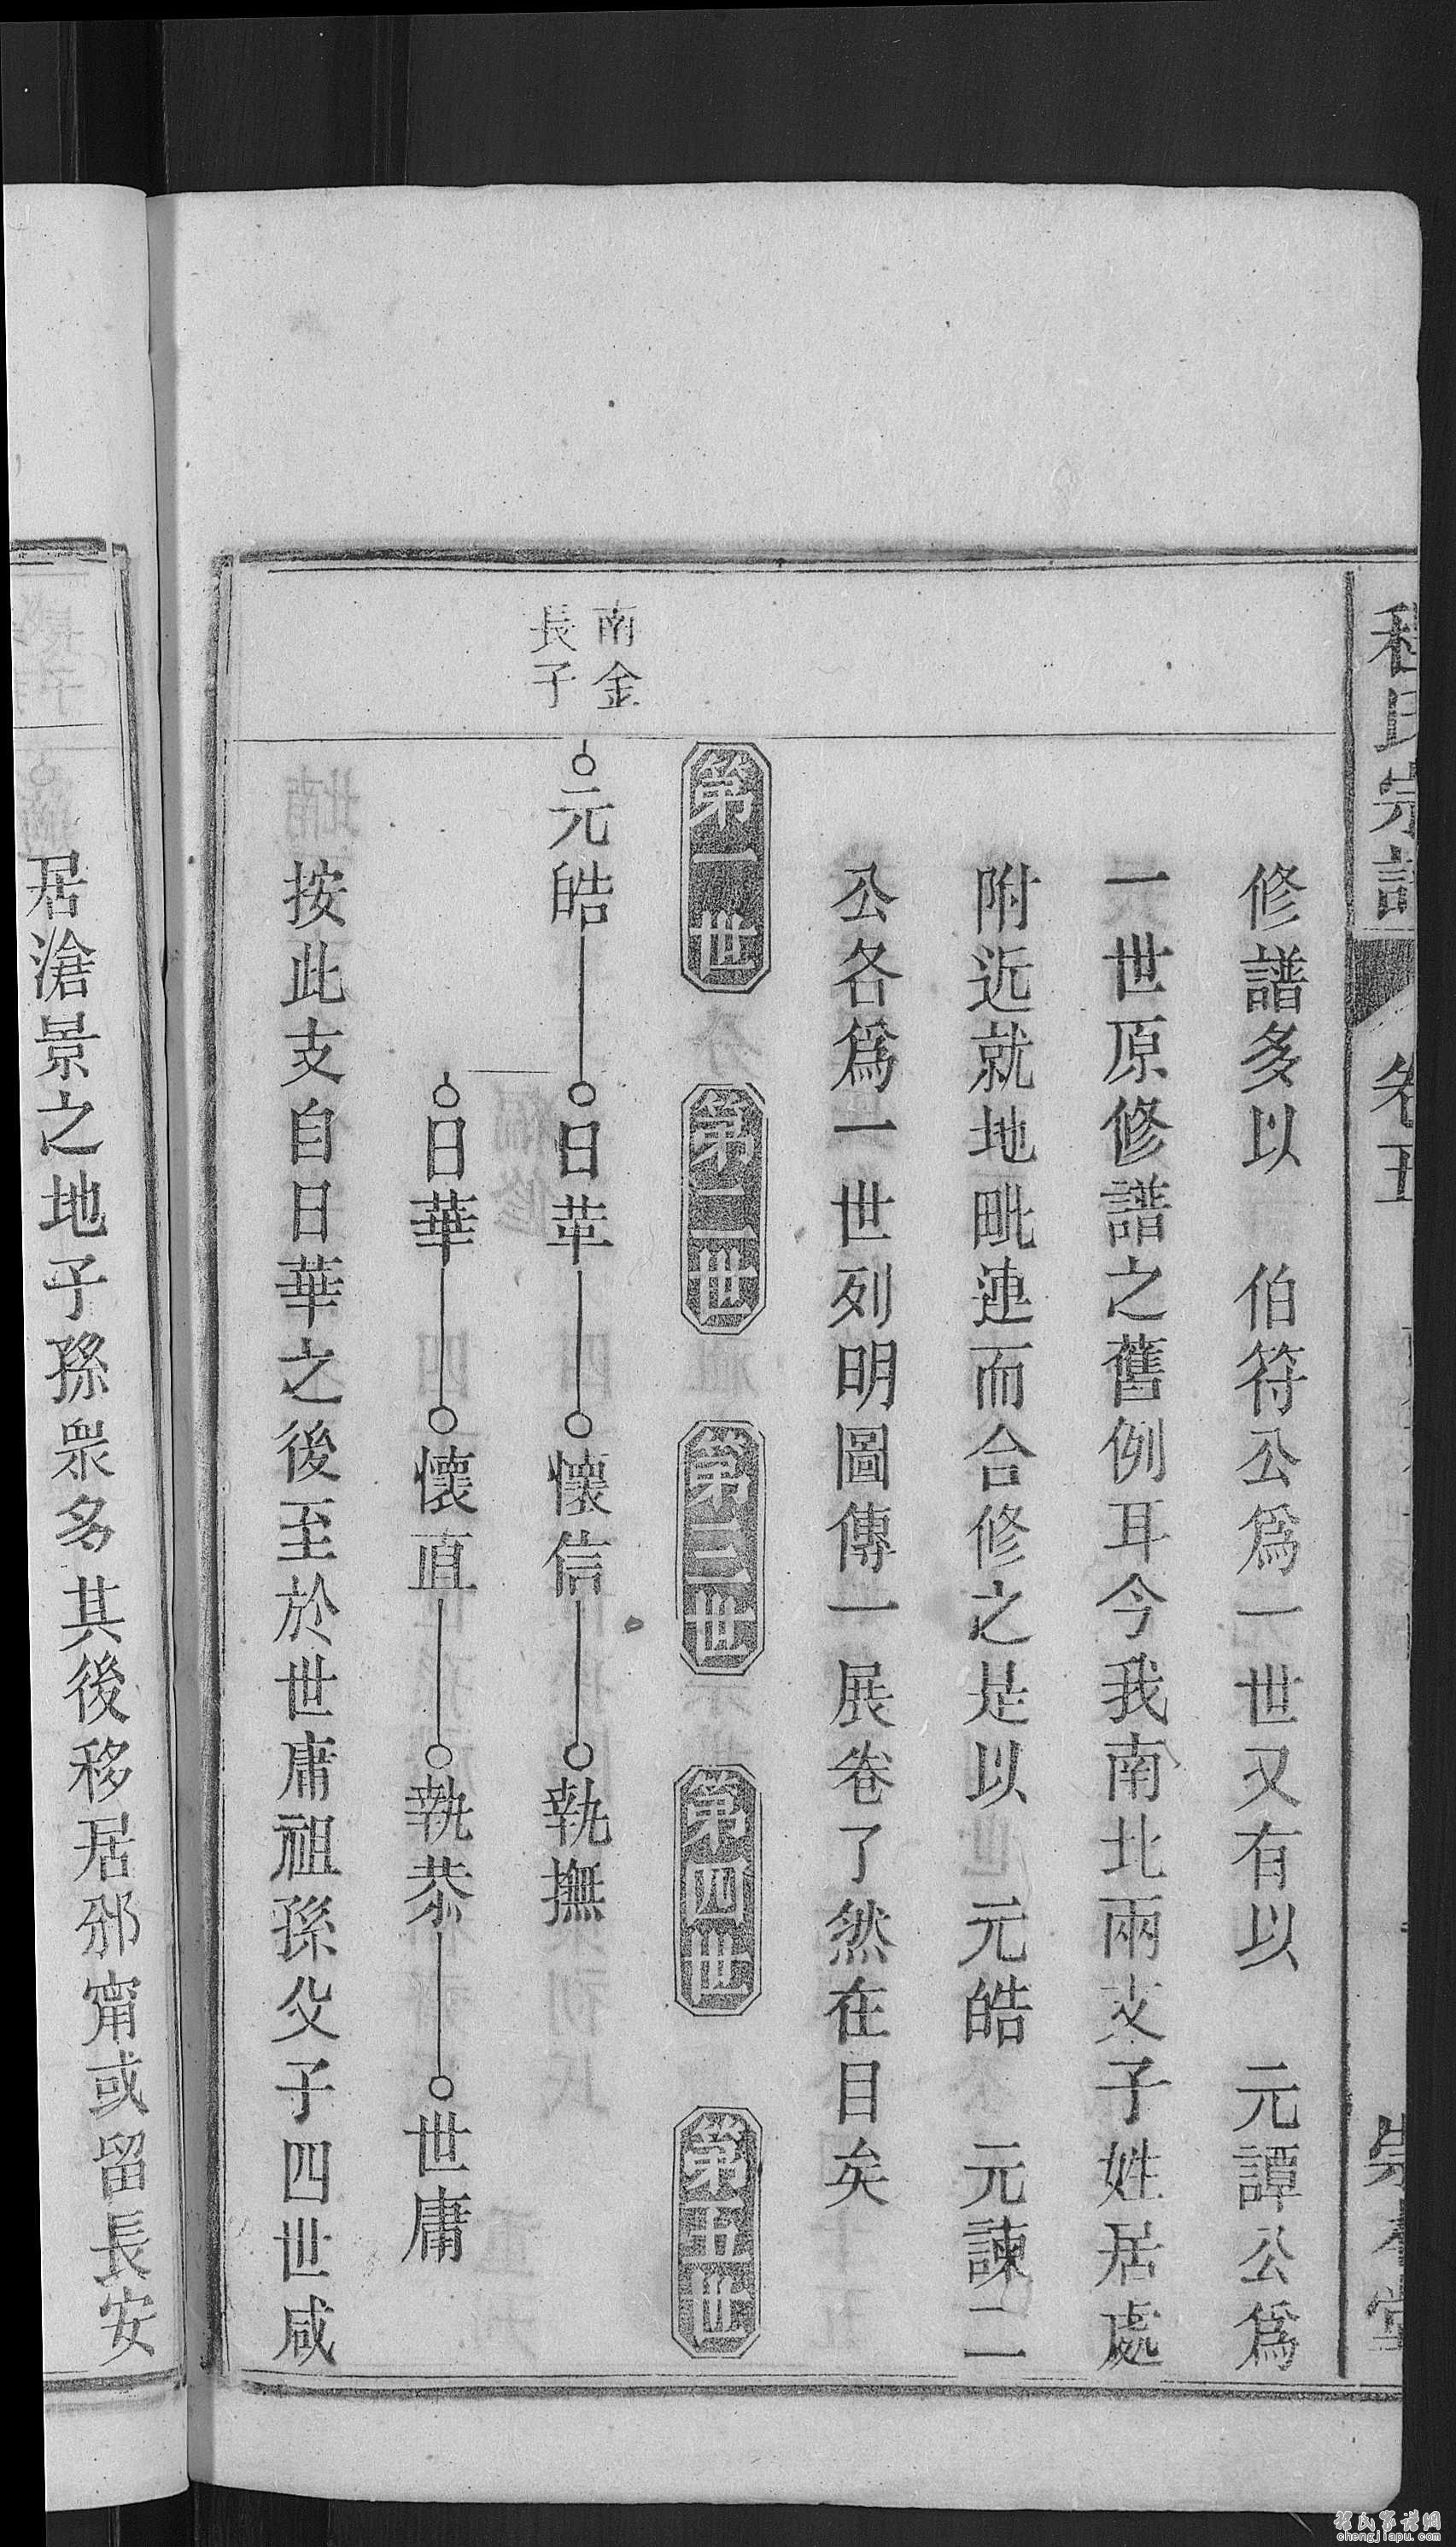 程氏宗譜 卷五
修譜多以 伯符公爲一世又有以 元譚公爲
一世原修譜之舊例耳今我南北兩支子姓居處
附近就地毗連而合修之是以 元皓 元諫二
公各爲一世列明圖傳一展卷了然在目矣
第一世 第二世 第三世 第四世 第五世
南金
長子
元皓 日苹 懷信 執撫
日華 懷直 執恭 世庸
按此支自日華之後至於世庸祖孫父子四世咸
居滄景之地子孫衆多其後移居邠甯或留長安
程氏家谱网
chengjiapu.com